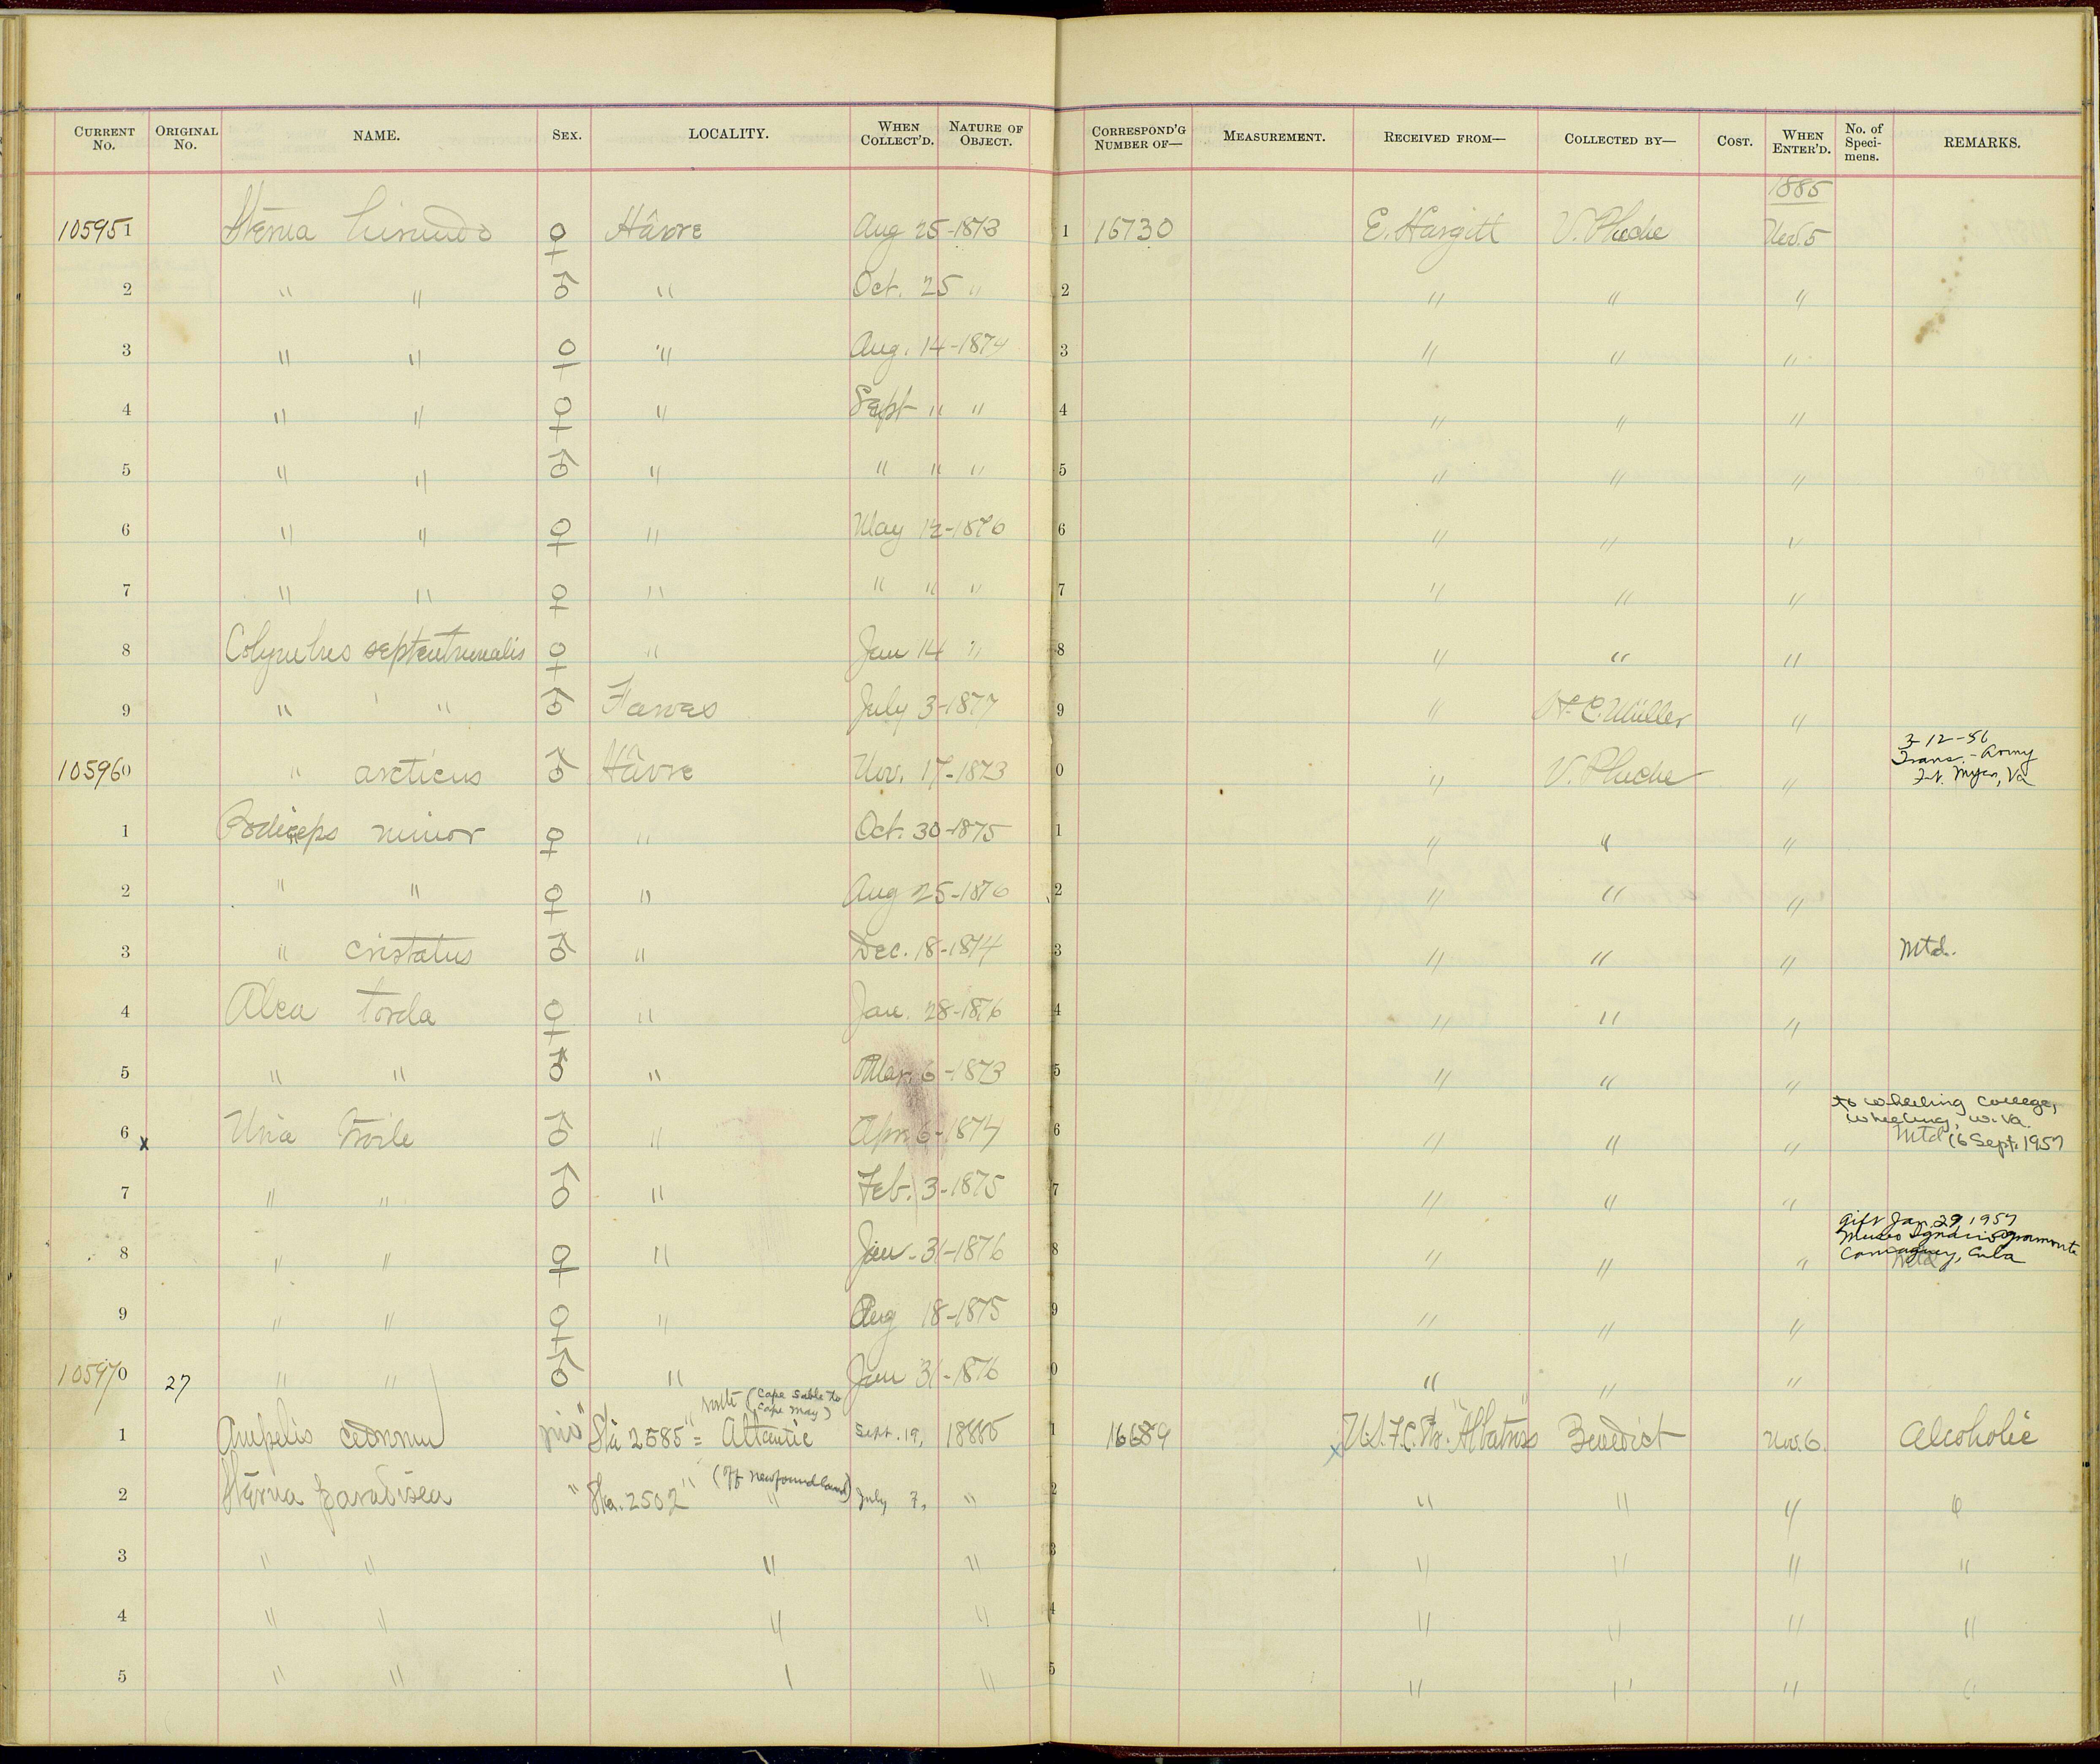 CURRENT No. ORIGINAL No. NAME. SEX. LOCALITY. WHEN COLLECT'D. NATURE OF OBJECT. CORRESPOND'G NUMBER OF— MEASUREMENT. RECEIVED FROM— COLLECTED BY— COST. WHEN ENTER'D. No. of Speci-mens. REMARKS.
1885
105951 Sterna hirundo ♀ Hâvre Aug 25-1873 1 16730 E. Hargitt V. Pluche Nov. 5
2 " " ♂ " Oct. 25 " 2 " " "
3 " " ♀ " Aug. 14-1874 3 " " "
4 " " ♀ " Sept " " 4 " " "
5 " " ♂ " " " " 5 " " "
6 " " ♀ " May 12-1876 6 " " "
7 " " ♀ " " " " 7 " " "
8 Colymbus septentrionalis ♀ " Jan 14 " 8 " " "
9 " " ♂ Faroes July 3-1877 9 " H. C. Müller "
3-12-56
Trans. - Army
105960 " arcticus ♂ Hâvre Nov. 17-1873 0 " V. Pluche " Ft. Myer, Va
1 Podiceps minor ♀ " Oct. 30-1875 1 " " "
2 " " ♀ " Aug 25-1876 2 " " "
3 " cristatus ♂ " Dec. 18-1874 3 " " " Mtd.
4 Alca torda ♀ " Jan. 28-1876 4 " " "
5 " " ♂ " Mar. 6-1873 5 " " "
to Wheeling College,
Wheeling, W. Va.
6 x Uria troile ♂ " Apr. 6-1874 6 " " " Mtd 16 Sept. 1957
7 " " ♂ " Feb. 3-1875 7 " " "
Gift Jan. 29, 1957
Museo Ignacio Agramonte
Camaguey, Cuba
8 " " ♀ " Jan. 31-1876 8 " " " Mtd
9 " " ♀ " Aug 18-1875 9 " " "
105970 27 " " ♂ " Jan 31-1876 0 " " "
(Cape Sable to
Cape May)
1 Ampelis cedrorum juv "Sta 2585" = Atlantic Sept. 19, 1885 1 16689 x U.S.F.C. Str. "Albatross" Benedict Nov. 6. Alcoholic
(Off Newfoundland)
2 Sterna paradisea " "Sta. 2502" " July 7, " 2 " " " "
3 " " " " 3 " " " "
4 " " " " 4 " " " "
5 " " " " 5 " " " "